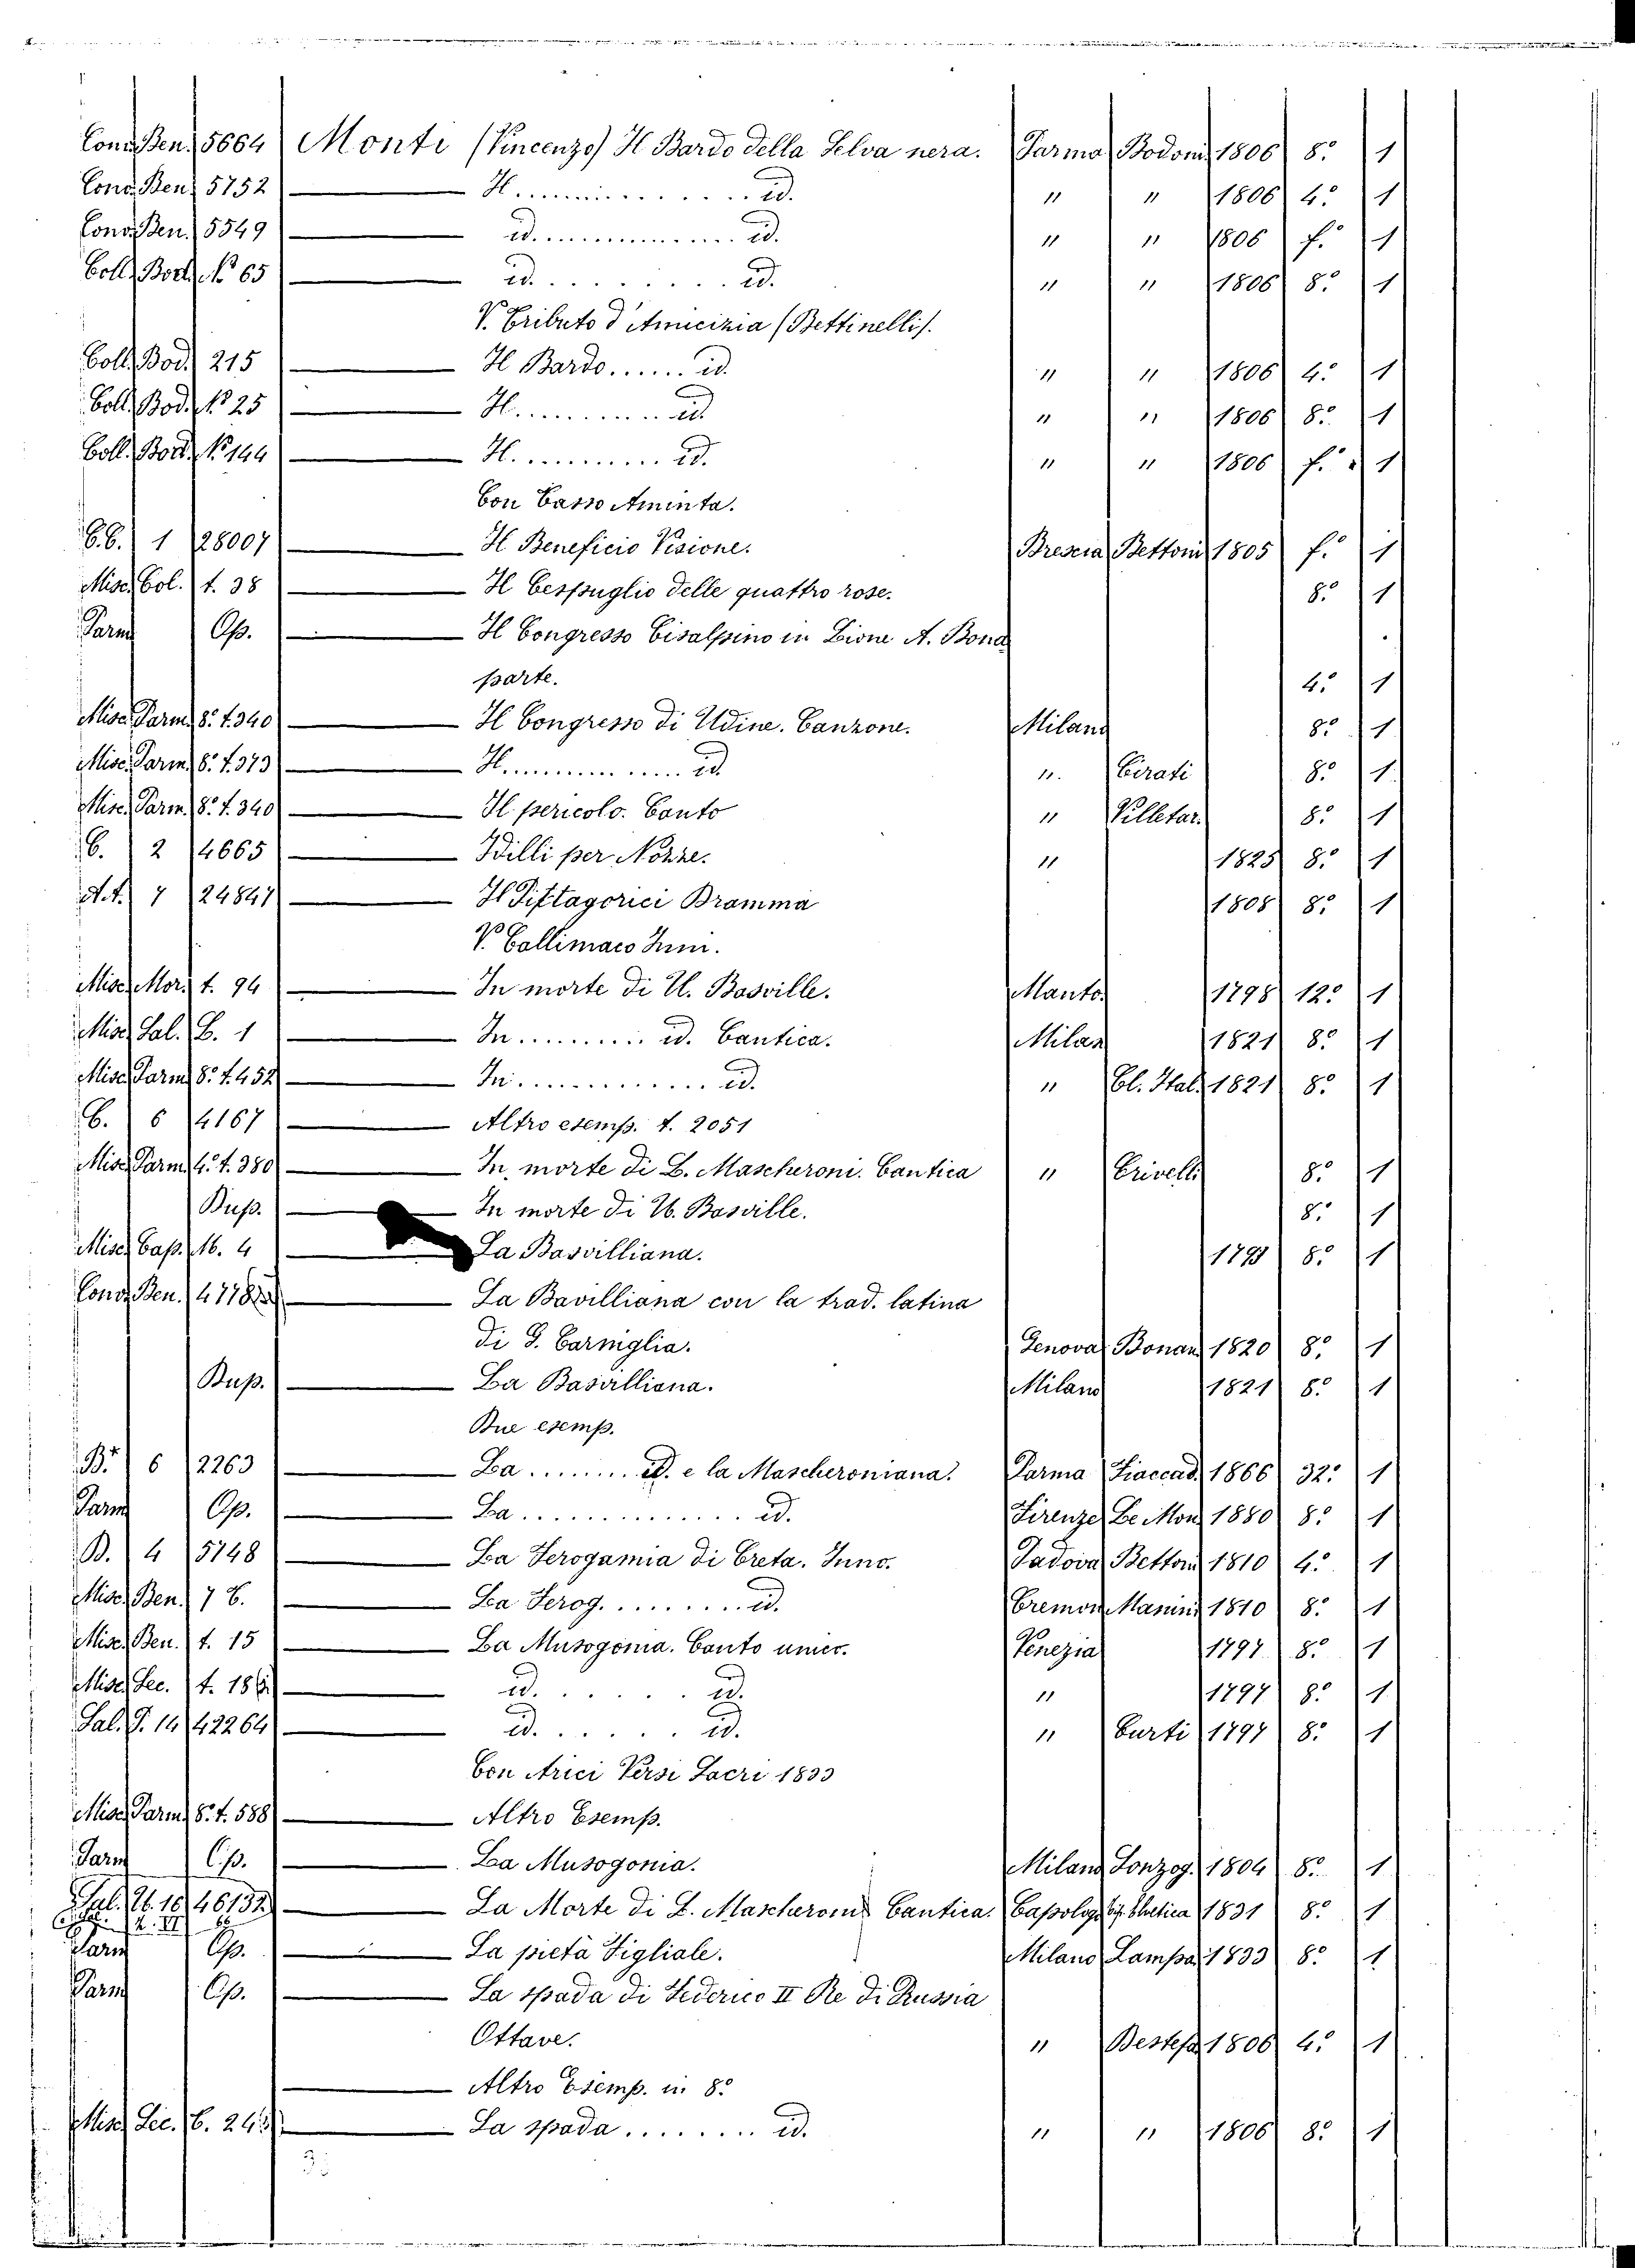 Cond. Ben. 5664 Monti (Vincenzo) Il Bardo della Selva nera. Parma Bodoni 1806 8.° 1
Cond. Ben. 5752 Il ............ id. " " 1806 4.° 1
Cond. Ben. 5549 id. ............ id. " " 1806 f.° 1
Coll. Bod. N.° 65 id. ......... id. " " 1806 8.° 1
V. Tributo d'Amicizia (Bettinelli).
Coll. Bod. 215 Il Bardo ...... id. " " 1806 4.° 1
Coll. Bod. N.° 25 Il .......... id. " " 1806 8.° 1
Coll. Bod. N.° 144 Il .......... id. " " 1806 f.° 1
Con Tasso Aminta.
C.C. 1 28007 Il Beneficio Visione. Brescia Bettoni 1805 f.° 1
Misc. Col. t. 38 Il Cespuglio delle quattro rose. 8.° 1
Parm Op. Il Congresso Cisalpino in Lione A. Bona
parte. 4.° 1
Misc. Parm. 8.° t. 340 Il Congresso di Udine. Canzone. Milano 8.° 1
Misc. Parm. 8.° t. 373 Il ............ id. ". Cirati 8.° 1
Misc. Parm. 8.° t. 340 Il pericolo. Canto " Villetar. 8.° 1
C. 2 4665 Idilli per Nozze. " 1825 8.° 1
A.A. 7 24847 I Pittagorici Dramma 1808 8.° 1
V. Callimaco Inni.
Misc. Mor. t. 94 In morte di U. Basville. Manto. 1798 12.° 1
Misc. Sal. B. 1 In ......... id. Cantica. Milan 1821 8.° 1
Misc. Parm. 8.° t. 452 In ............ id. " Cl. Ital. 1821 8.° 1
C. 6 4167 Altro esemp. t. 2051
Misc. Parm. 4.° t. 380 In morte di L. Mascheroni. Cantica " Crivelli 8.° 1
Dup. In morte di U. Basville. 8.° 1
Misc. Cap. M. 4 La Basvilliana. 1793 8.° 1
Cond. Ben. La Bavilliana con la trad. latina
di G. Carniglia. Genova Bonau 1820 8.° 1
Dup. La Basvilliana. Milano 1821 8.° 1
Due esemp.
B.* 6 2263 La ........ id. e la Mascheroniana. Parma Fiaccad. 1866 32.° 1
Parm Op. La ............ id. Firenze Le Mon 1880 8.° 1
B. 4 5748 La Ierogamia di Creta. Inno. Padova Bettoni 1810 4.° 1
Misc. Ben. 7 C. La Ierog. ........ id. Cremon Manini 1810 8.° 1
Misc. Ben. t. 15 La Musogonia. Canto unico. Venezia 1797 8.° 1
Misc. Sec. t. id. ..... id. " 1797 8.° 1
Sal. I. 14 42264 id. ..... id. " Curti 1797 8.° 1
Con Arici Versi Sacri 1833
Misc. Parm. 8.° t. 588 Altro Esemp.
Parm Op. La Musogonia. Milano Sonzog. 1804 8.° 1
Sal. M. 16 46132 La Morte di L. Mascheroni Cantica. Capolago tip. Elvetica 1831 8.° 1
Parm Op. La pietà Figliale. Milano Lampa. 1833 8.° 1
Parm Op. La spada di Federico II Re di Prussia
Ottave. " Destefa 1806 4.° 1
Altro Esemp. in 8.°
Misc. Sec. La spada ........ id. " " 1806 8.° 1